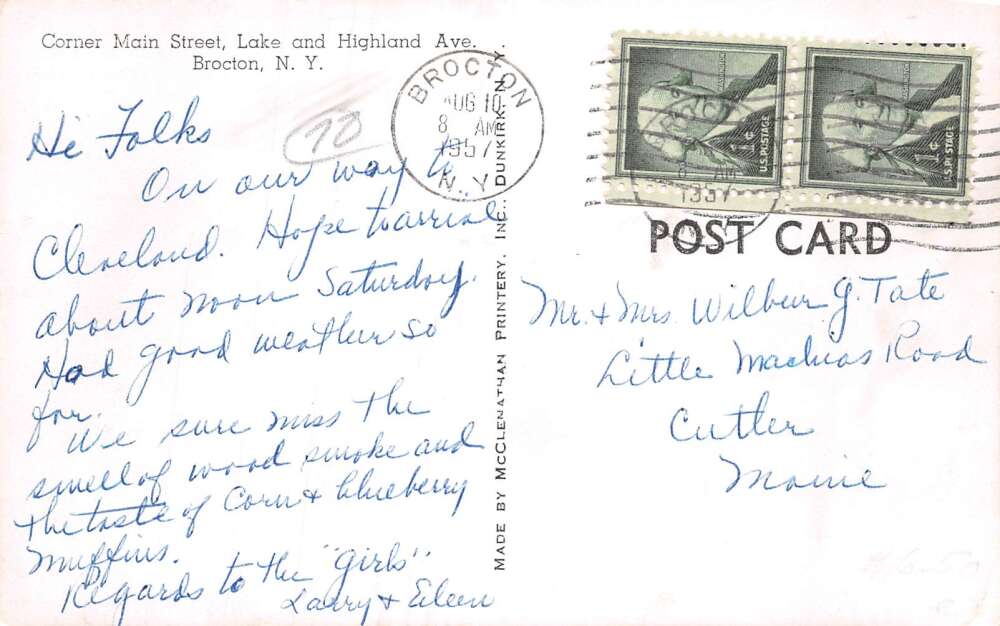 Corner Main Street, Lake and Highland Ave.
Brocton, N. Y.
Hi Folks
On our way to
Cleveland. Hope to arrive
about noon Saturday.
Had good weather so
far.
We sure miss the
smell of wood smoke and
the taste of Corn & blueberry
muffins.
Regards to the "girls".
Larry & Eileen
72
BROCTON
AUG 10
8 AM
1957
N.Y.
MADE BY MCCLENATHAN PRINTERY, INC., DUNKIRK, N.Y.
WASHINGTON
1¢
U.S. POSTAGE
WASHINGTON
1¢
U.S. POSTAGE
AM
1957
POST CARD
Mr. & Mrs. Wilbur G. Tate
Little Machias Road
Cutler
Maine